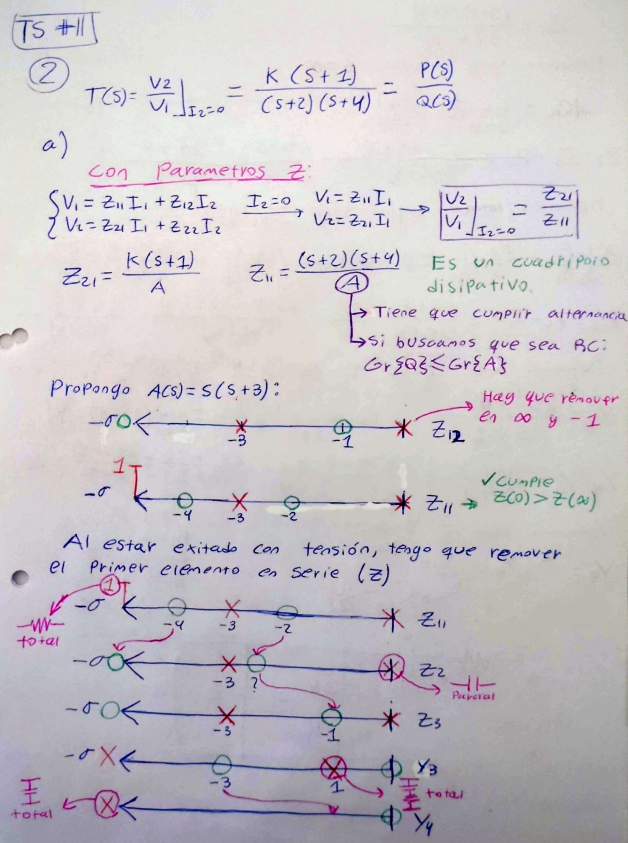 TS #11
2
T(s) = V2/V1 ⌋I2=0 = K(S+1)/(S+2)(S+4) = P(S)/Q(S)
a)
Con Parametros Z:
{V1 = Z11 I1 + Z12 I2 I2=0 → V1 = Z11 I1 → V2/V1 ⌋I2=0 = Z21/Z11
{V2 = Z21 I1 + Z22 I2 V2 = Z21 I1
Z21 = K(S+1)/A Z11 = (S+2)(S+4)/A Es un cuadripolo
disipativo.
→ Tiene que cumplir alternancia
→ Si buscamos que sea RC:
Gr{Q} ≤ Gr{A}
Propongo A(s) = S(S+3):
Hay que remover
en ∞ y -1
-σ -3 -1 Z12
1
-σ -4 -3 -2 Z11 → ✓Cumple
Z(0) > Z(∞)
Al estar exitado con tensión, tengo que remover
el primer elemento en serie (Z)
1
-σ -4 -3 -2 Z11
total
-σ -3 ? Z2
Parcial
-σ -3 -1 Z3
-σ -3 1 Y3
total
total
Y4